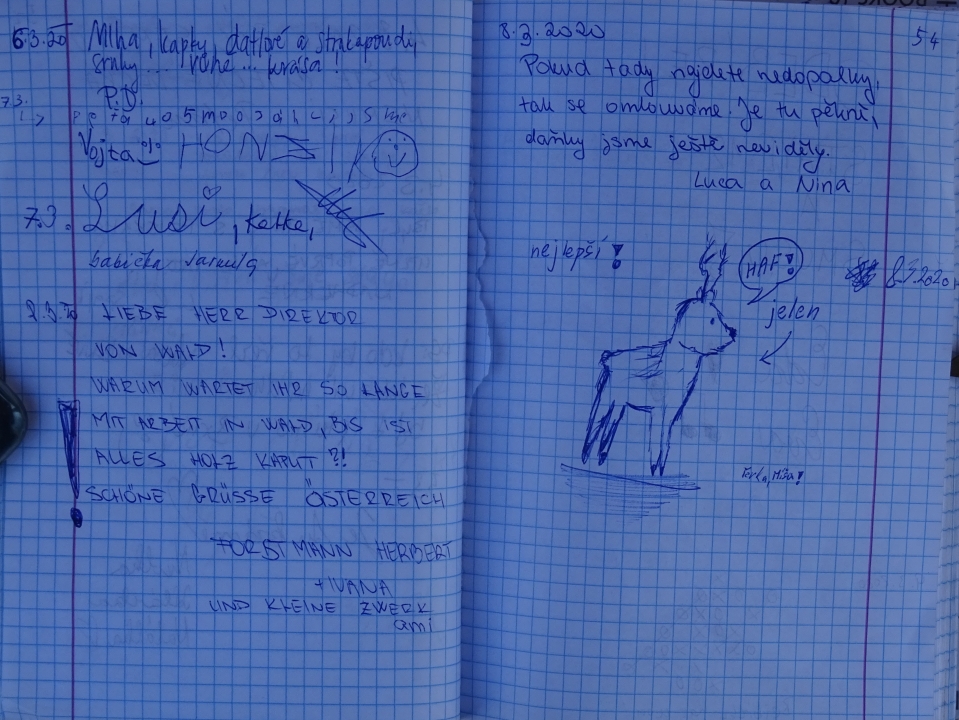 6.3.20 Mlha, kapky, datlové a strakapoudi,
srnky ... ... krása!
P.D.
7.3.
Vojta HONZÍK
7.3. Lusi, Katka,
babička
8.3.20 LIEBE HERR DIREKTOR
VON WALD!
WARUM WARTET IHR SO LANGE
MIT ARBEIT IN WALD, BIS IST
ALLES HOLZ KAPUT?!
SCHÖNE GRÜSSE ÖSTERREICH
FORSTMANN HERBERT
+ IVANA
UND KLEINE ZWERK
ami
54
8.3.2020
Pokud tady najdete nedopalky,
tak se omlouváme. Je tu pěkně,
daňky jsme ještě neviděly.
Luca a Nina
nejlepší!
HAF!
8.3.2020
jelen